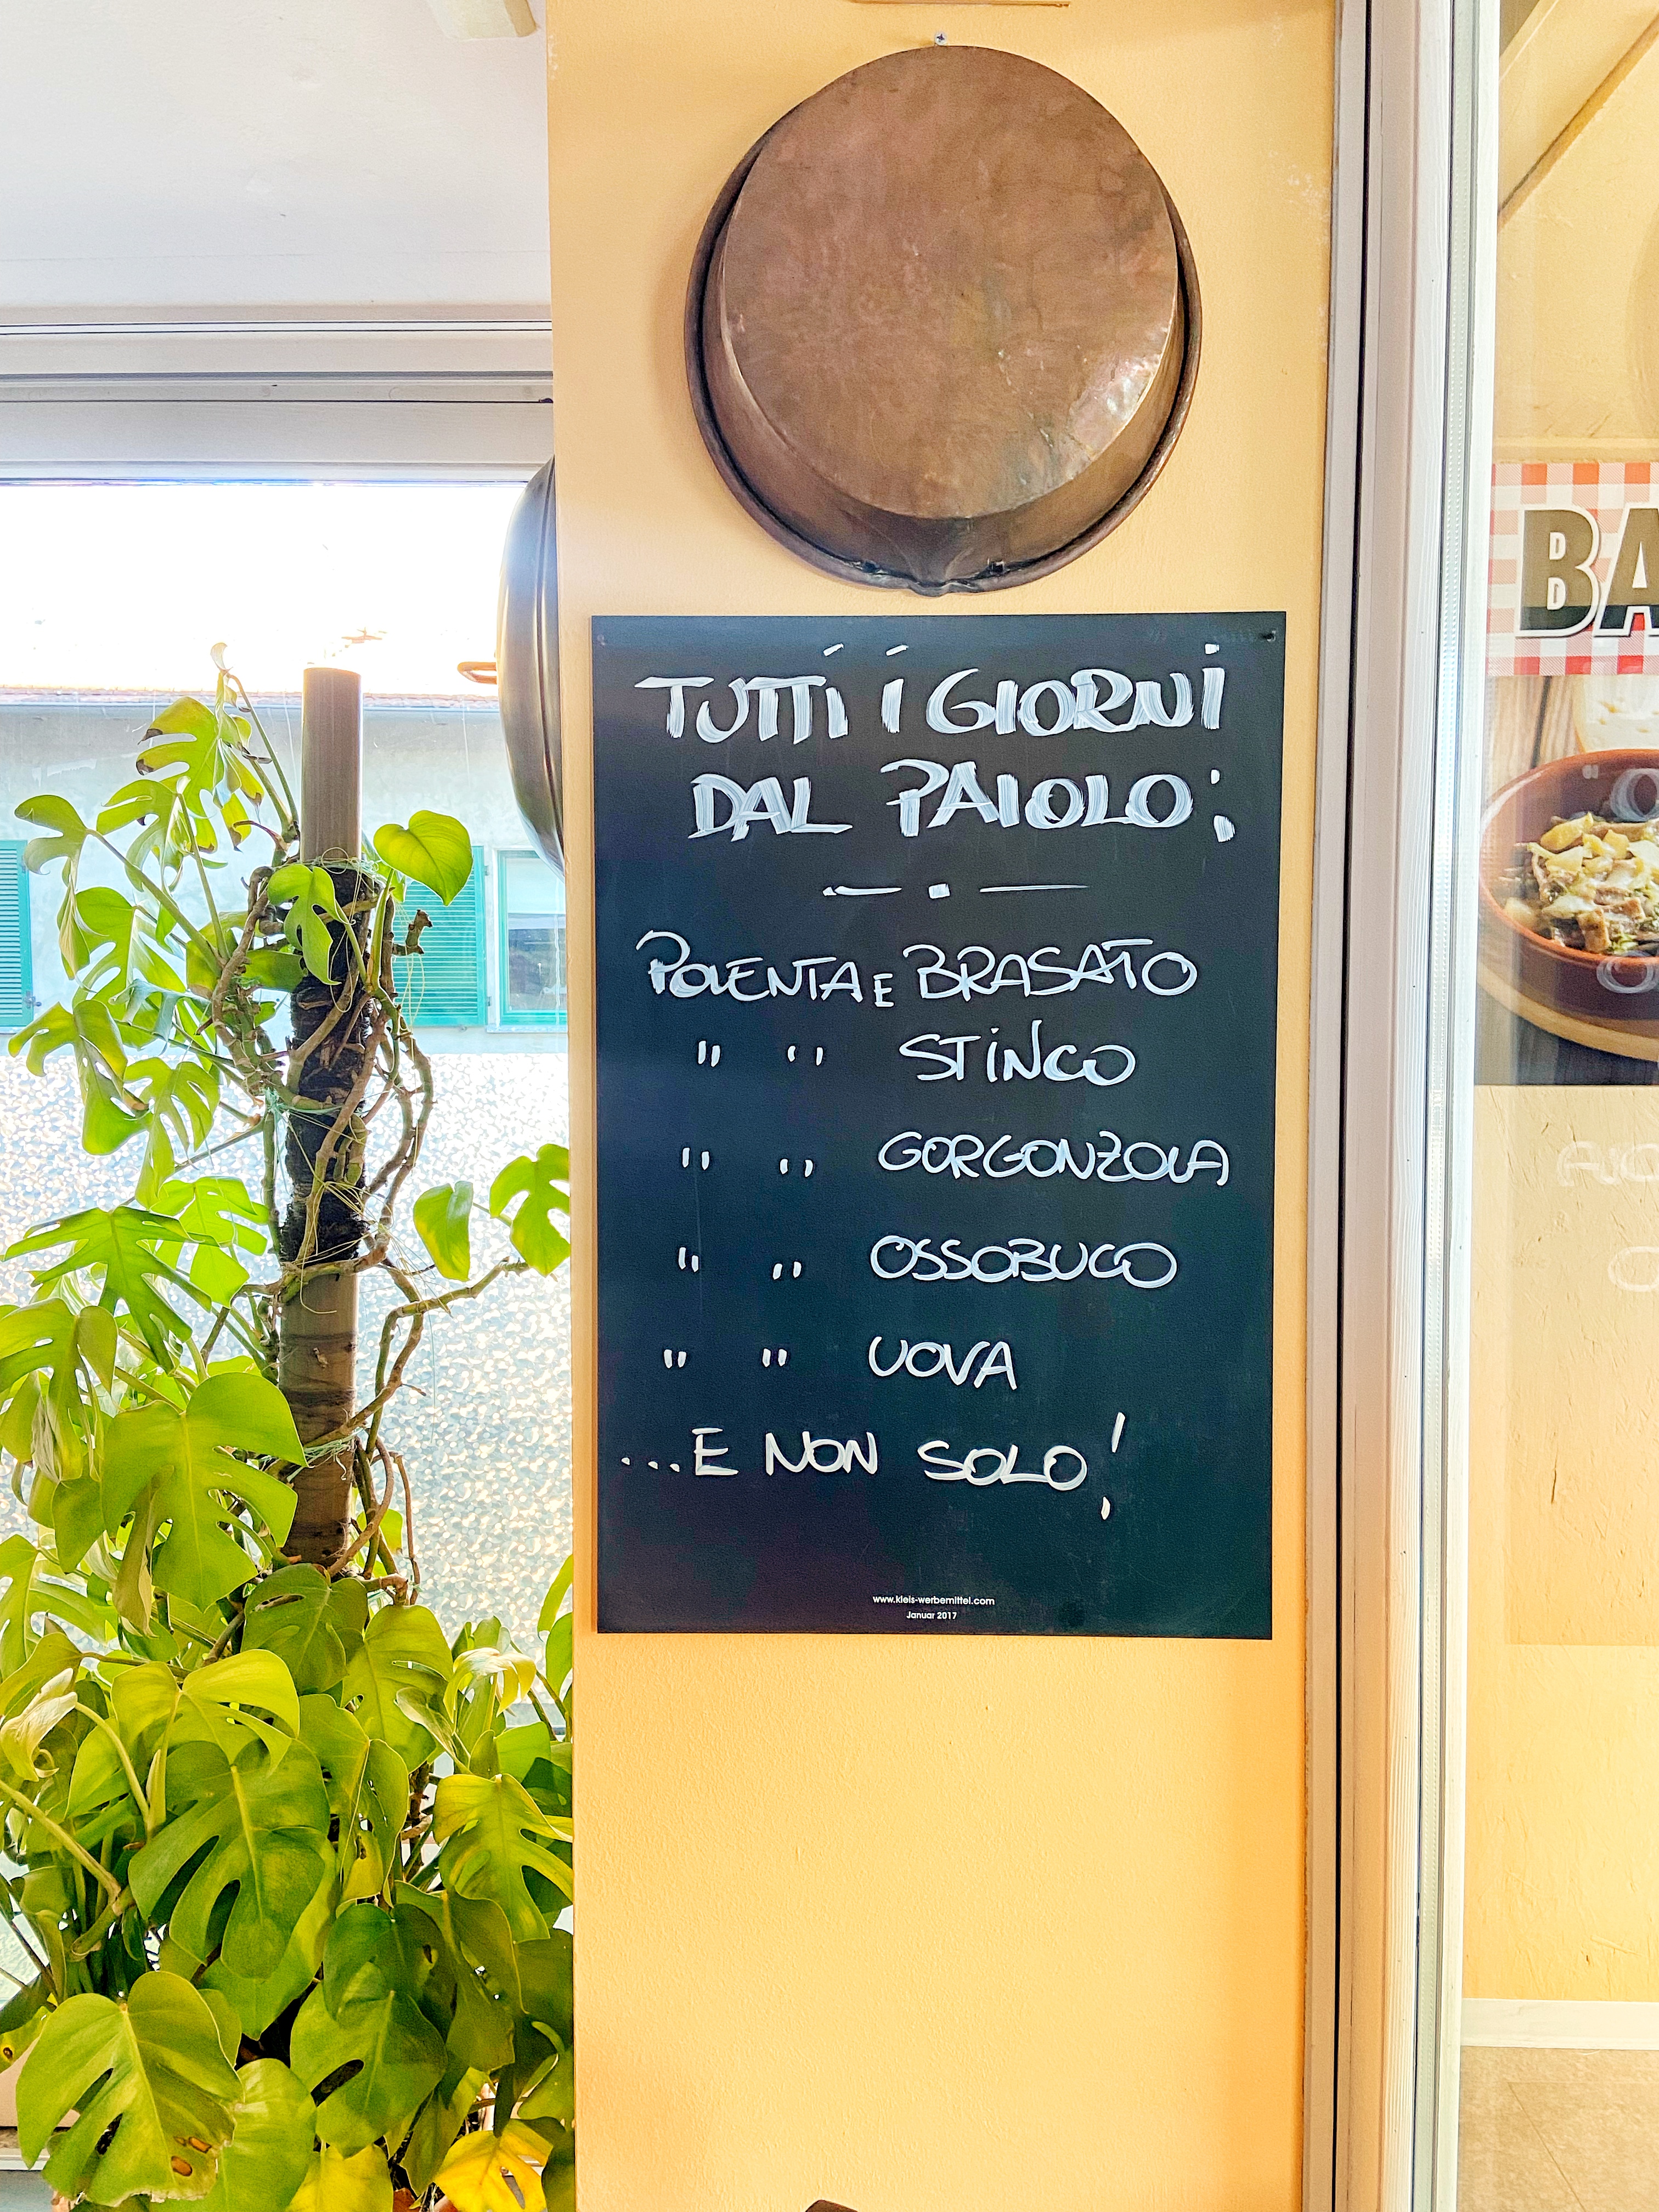 TUTTI I GIORNI
DAL PAIOLO:
POLENTA E BRASATO
" " STINCO
" " GORGONZOLA
" " OSSOBUCO
" " UOVA
...E NON SOLO!
www.kleis-werbemittel.com
Januar 2017
BA